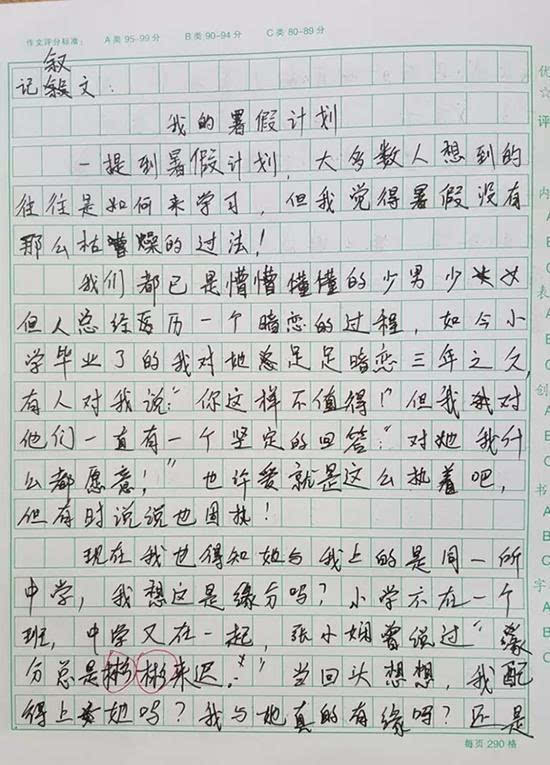 作文评分标准： A类 95-99分 B类 90-94分 C类 80-89分
叙
记 文：
我的暑假计划
一提到暑假计划，大多数人想到的
往往是如何来学习，但我觉得暑假没有
那么枯燥的过法！
我们都已是懵懵懂懂的少男少女
但人总经历一个暗恋的过程，如今小
学毕业了的我对她足足暗恋三年之久，
有人对我说："你这样不值得！"但我对
他们一直有一个坚定的回答："对她我什
么都愿意！"也许爱就是这么执着吧，
但有时说说也固执！
现在我也得知她与我上的是同一所
中学，我想这是缘分吗？小学不在一个
班，中学又在一起，张小娴曾说过"缘
分总是 来迟。"当回头想想，我配
得上她吗？我与她真的有缘吗？还是
每页290格
优
☆
评
内
A
B
C
表
A
B
C
创
A
B
C
书
A
B
C
字
A
B
C